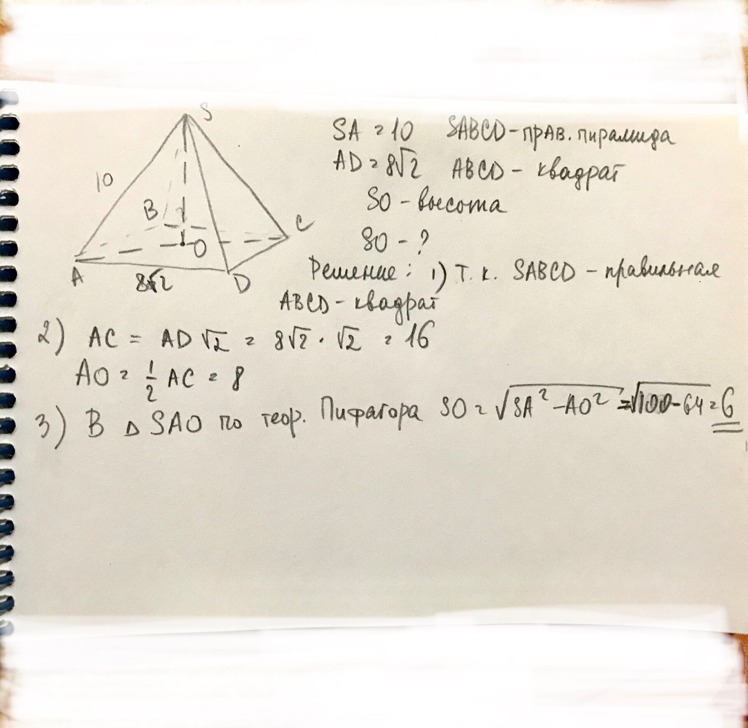 S
10
B
O
C
A
8√2
D
SA = 10 SABCD - прав. пирамида
AD = 8√2 ABCD - квадрат
SO - высота
SO - ?
Решение: 1) т.к. SABCD - правильная
ABCD - квадрат
2) AC = AD √2 = 8√2 · √2 = 16
AO = 1/2 AC = 8
3) В Δ SAO по теор. Пифагора SO = √SA² - AO² = √100 - 64 = 6